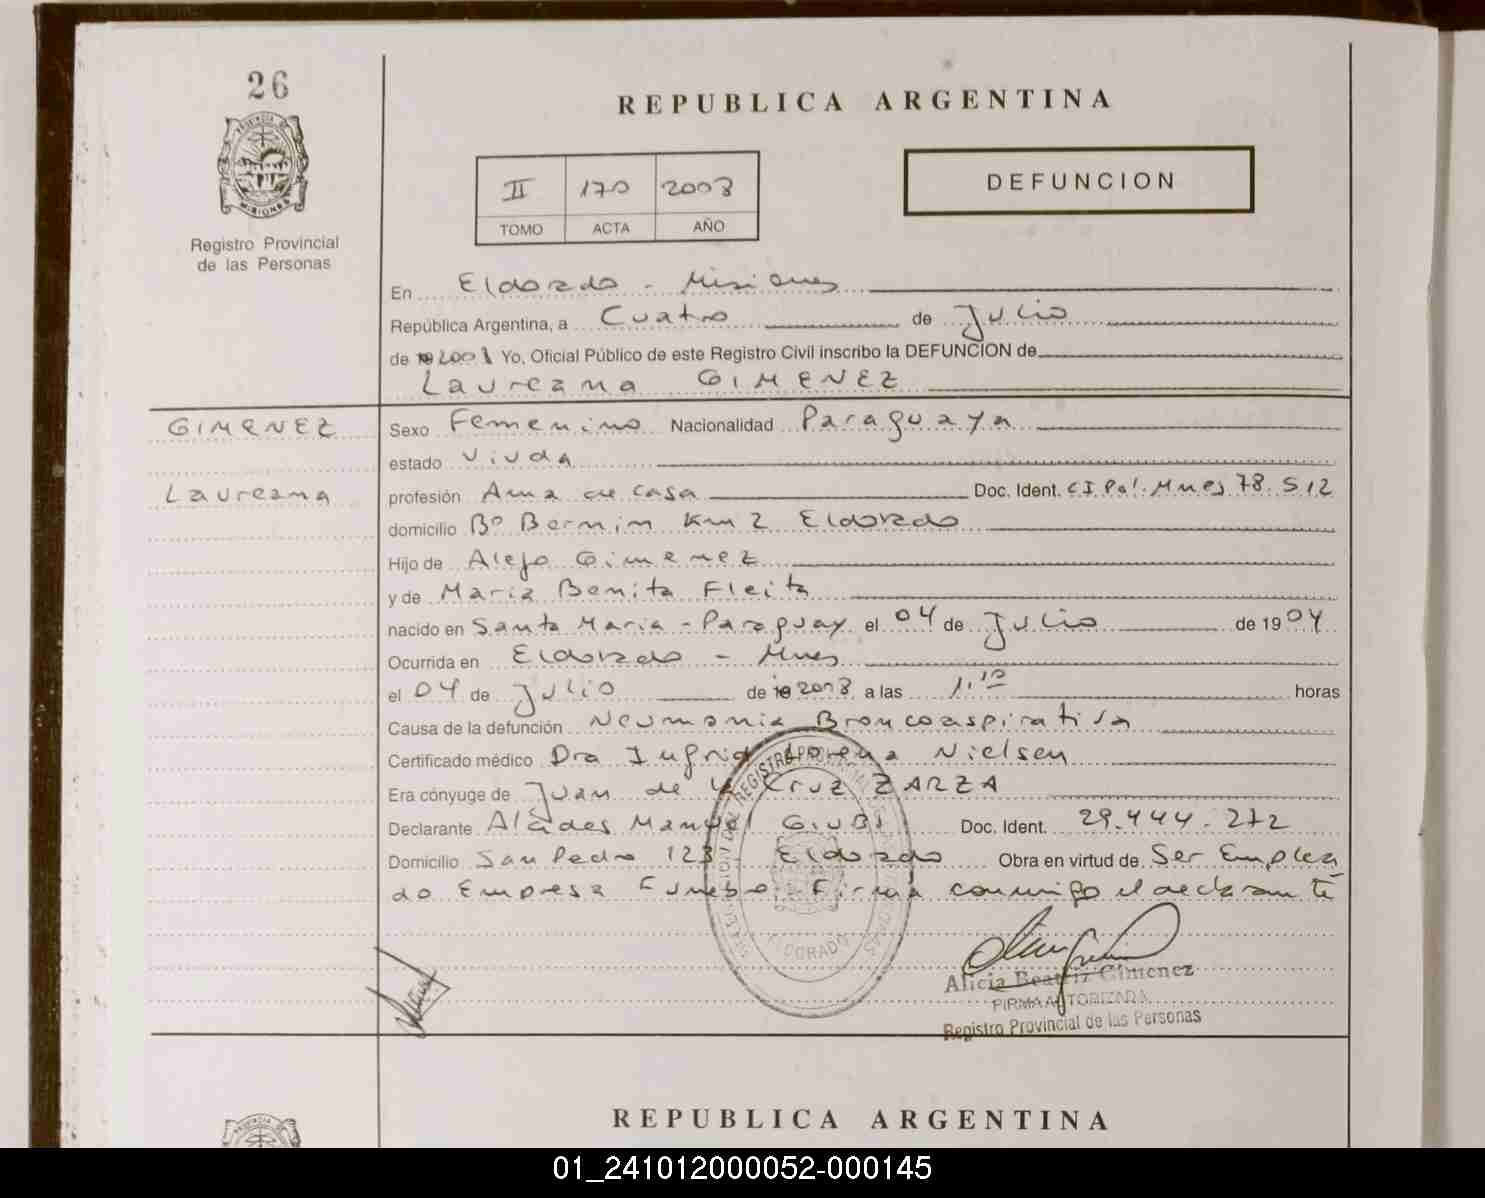 26
REPUBLICA ARGENTINA
PROVINCIA DE
MISIONES
Registro Provincial
de las Personas
II 170 2003
TOMO ACTA AÑO
DEFUNCION
En Eldorado - Misiones
República Argentina, a Cuatro de Julio
de 2003 Yo, Oficial Público de este Registro Civil inscribo la DEFUNCION de
Laureana GIMENEZ
GIMENEZ
Laureana
Sexo Femenino Nacionalidad Paraguaya
estado Viuda
profesión Ama de casa Doc. Ident. C.I. Pol. Mnes 78.512
domicilio Bº Bernin Km 2 Eldorado
Hijo de Alejo Gimenez
y de Maria Benita Fleita
nacido en Santa Maria - Paraguay el 04 de Julio de 1904
Ocurrida en Eldorado - Mnes
el 04 de Julio de 2003 a las 1.10 horas
Causa de la defunción Neumonia Broncoaspirativa
Certificado médico Dra Ingrid Lorena Nielsen
Era cónyuge de Juan de la Cruz ZARZA
Declarante Alcides Manuel GIUBI Doc. Ident. 29.444.272
Domicilio San Pedro 123 Eldorado Obra en virtud de Ser Emplea
do Empresa Funebre Firma conmigo el declarante
ELDORADO
Alicia Beatriz Gimenez
FIRMA AUTORIZADA
Registro Provincial de las Personas
REPUBLICA ARGENTINA
01_241012000052-000145